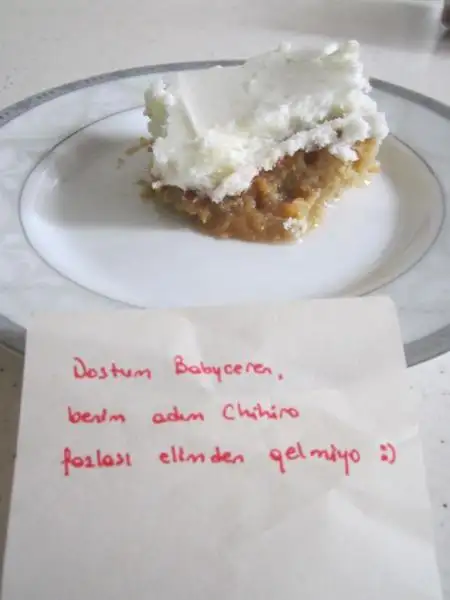 Dostum Babyceren,
benim adım Chihiro
fazlası elimden gelmiyo :)